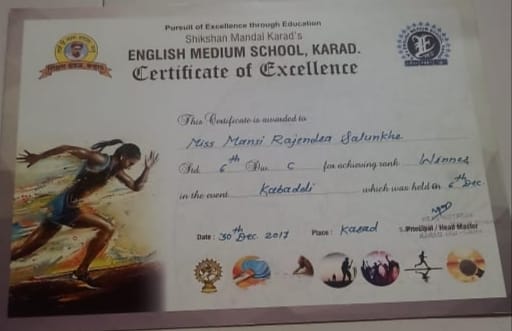 Pursuit of Excellence through Education
Shikshan Mandal Karad's
ENGLISH MEDIUM SCHOOL, KARAD.
Certificate of Excellence
This Certificate is awarded to
Miss Mansi Rajendra Salunkhe
Std. 6th Div. C for achieving rank Winner
in the event Kabaddi which was held on 6th Dec.
Date : 30th Dec. 2017 Place : Karad Principal / Head Master